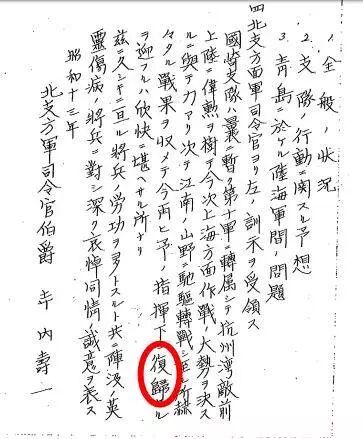 1 全般ノ状況
2. 支隊ノ行動ニ関スル予想
3. 青島ニ於ケル陸海軍間ノ問題
四北支方面軍司令官ヨリ左ノ訓示ヲ受領ス
國崎支隊ハ曩ニ暫ク第十軍ニ轉属シテ杭州湾敵前
上陸ニ偉勲ヲ樹テ今次上海方面作戦ノ大勢ヲ決ス
ルニ與テ力アリ次テ江南ノ山野ニ馳駆轉戦シ至ル所赫
々タル戦果ヲ収メテ今再ヒ予ノ指揮下ニ復歸ス
ヲ迎フルハ欣快ニ堪ヘサル所ナリ
茲ニ久シキニ亘ル將兵ノ労功ヲ多トスルト共ニ陣没ノ英
靈傷病ノ將兵ニ對シ深ク哀悼同情ノ誠意ヲ表ス
昭和十三年
北支方軍司令官伯爵 寺内壽一